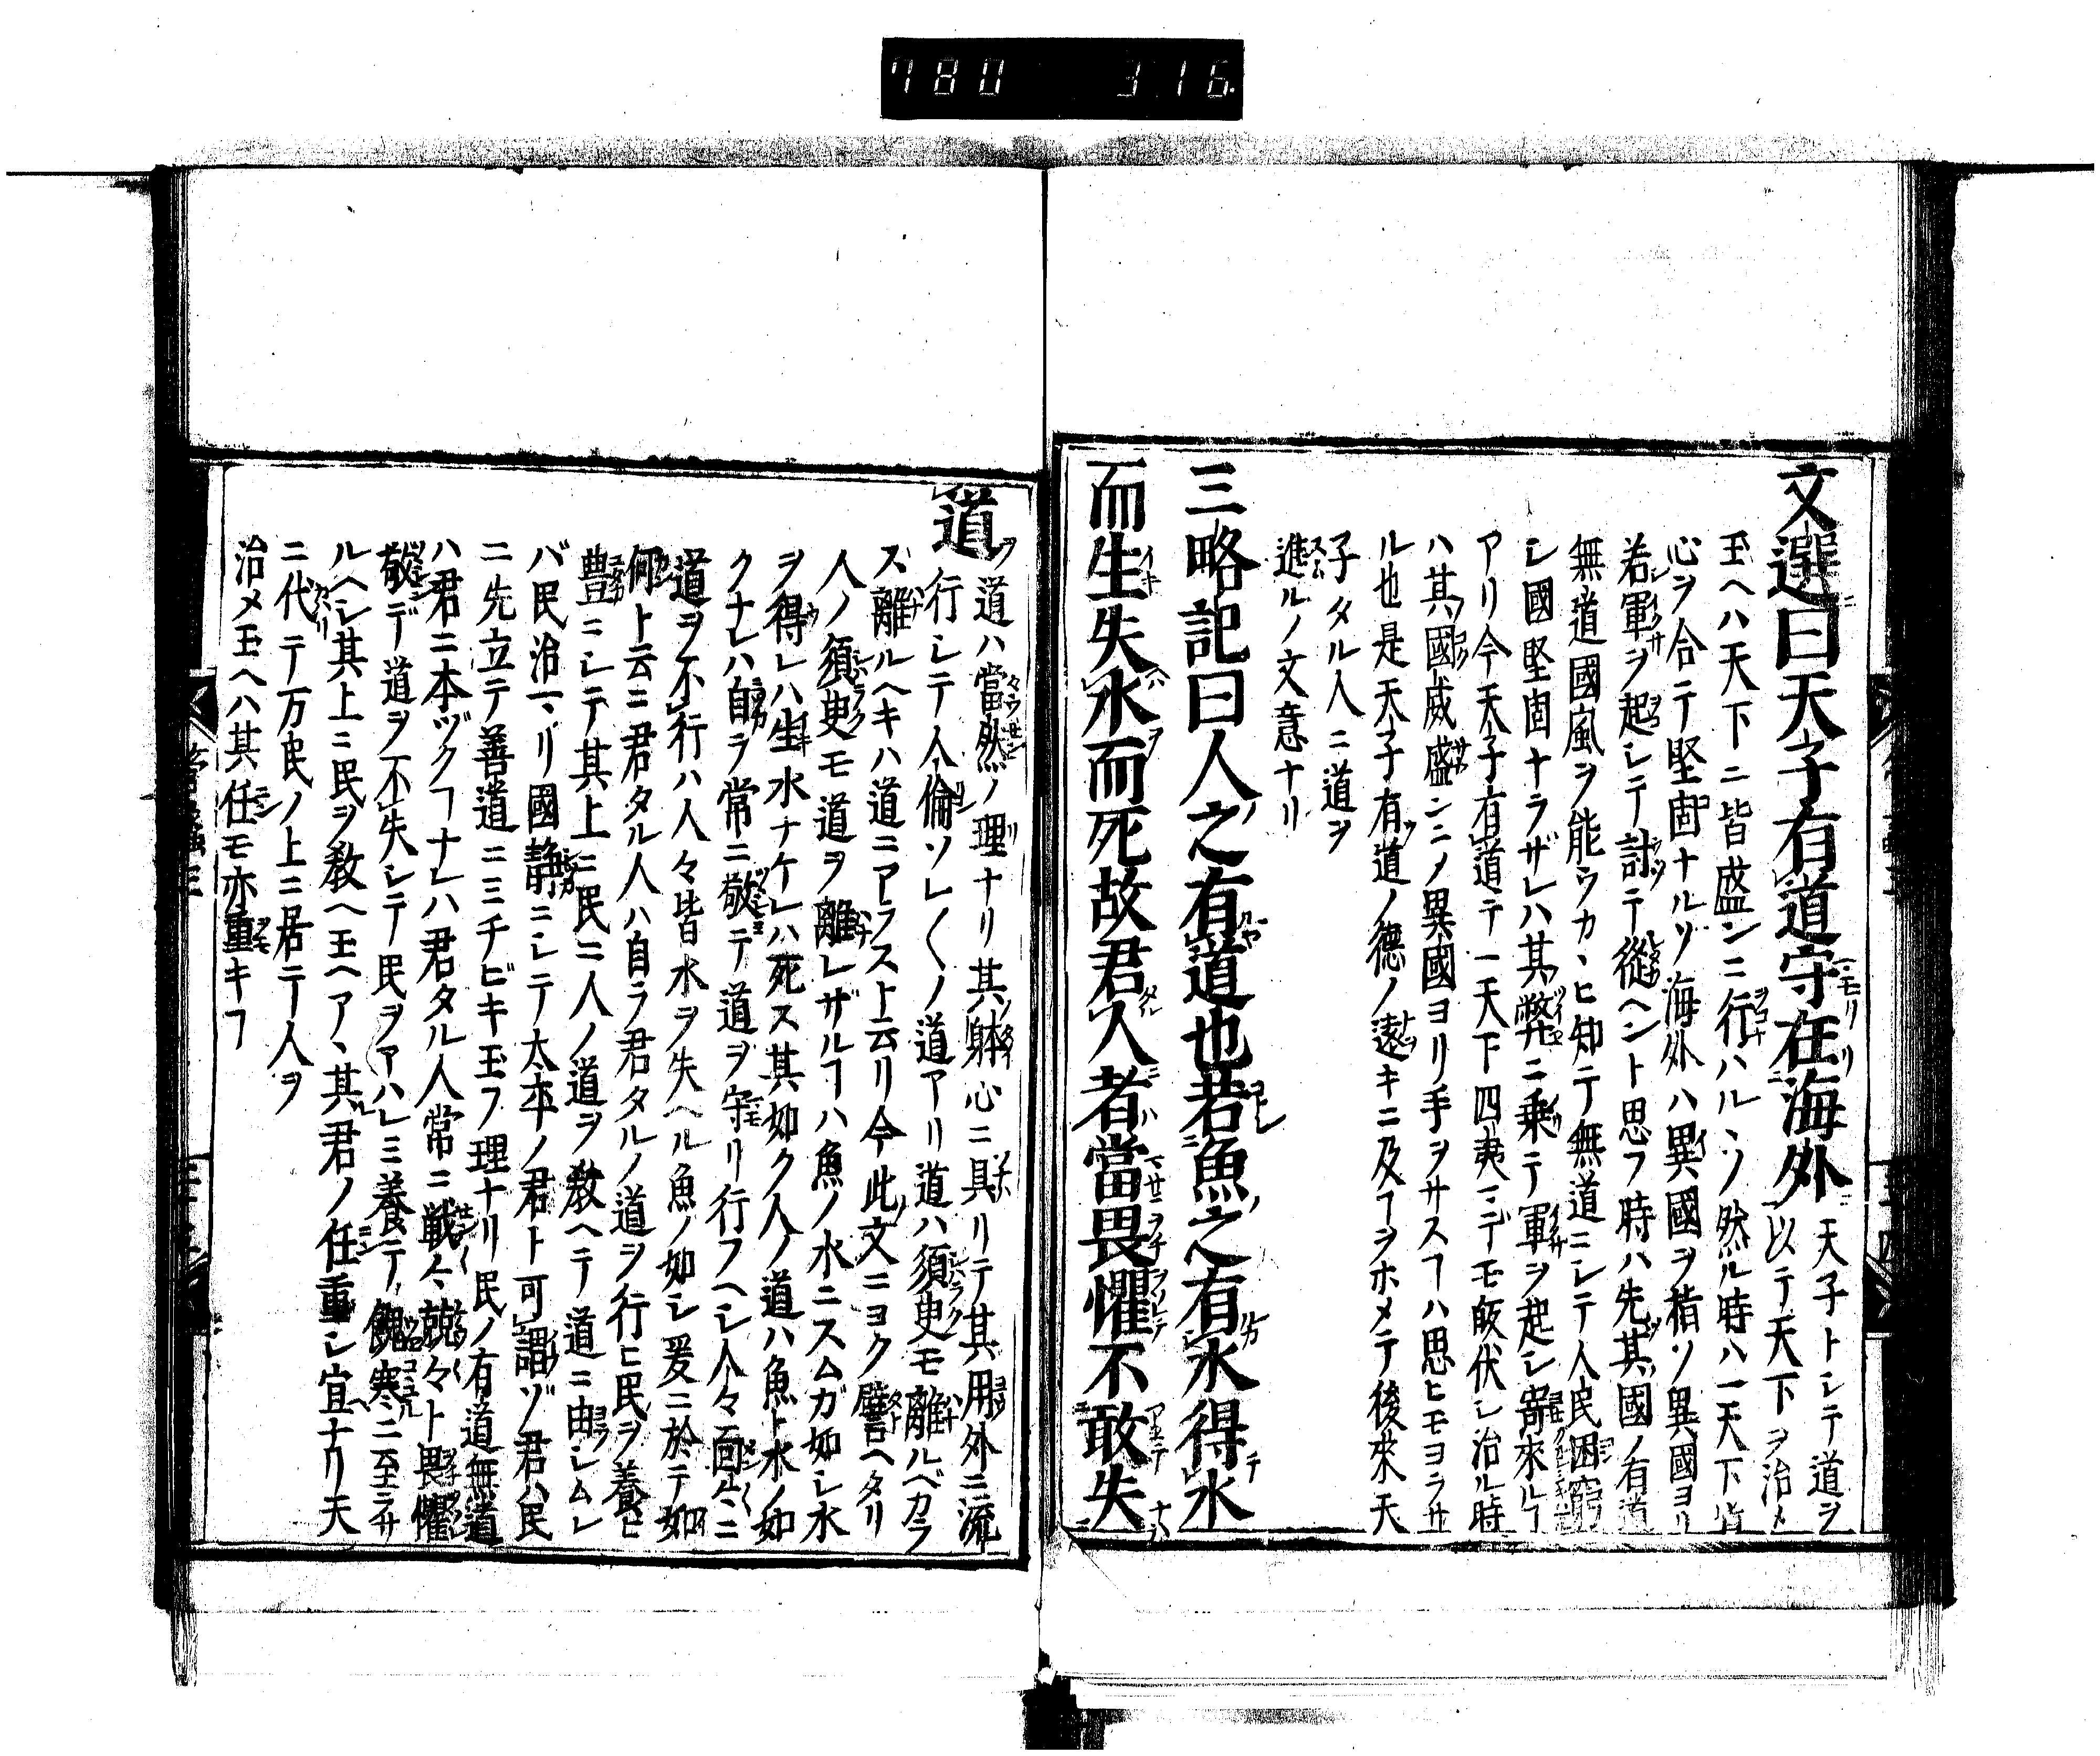 780 316
文選曰天子有道守在海外 天子トシテ道ヲ
以テ天下ヲ治メ
玉ヘハ天下ニ皆盛ンニ行ハルヽソ然ル時ハ一天下皆
心ヲ合テ堅固ナルソ海外ハ異國ヲ指ソ異國ヨリ
若軍ヲ起シテ討テ從ヘント思フ時ハ先其國ノ有道
無道國風ヲ能ウカヽヒ知テ無道ニシテ人民困窮
シ國堅固ナラザレハ其弊ニ乗テ軍ヲ起シ寄來ルヿ
アリ今天子有道テ一天下四夷ニデモ皈伏シ治ル時
ハ其國威盛ンニ〆異國ヨリ手ヲサスヿハ思ヒモヨラサ
ル也是天子有道ノ德ノ遠キニ及ヿヲホメテ後來天
子タル人ニ道ヲ
進ルノ文意ナリ
三略記曰人之有道也若魚之有水得水
而生失水而死故君人者當畏懼不敢失
道 道ハ當然ノ理ナリ其躰心ニ具リテ其用外ニ流
行シテ人倫ソレ〱ノ道アリ道ハ須臾モ離ルベカラ
ス離ルヘキハ道ニアラスト云リ今此文ニヨク譬ヘタリ
人ノ須臾モ道ヲ離レザルヿハ魚ノ水ニスムガ如シ水
ヲ得レハ生水ナケレハ死ス其如ク人ノ道ハ魚ト水ノ如
クナレハ自ラ常ニ敬テ道ヲ守リ行フヘシ人々面々ニ
道ヲ不行ハ人々皆水ヲ失ヘル魚ノ如シ爰ニ於テ如
何ト云ニ君タル人ハ自ラ君タルノ道ヲ行ヒ民ヲ養ヒ
豊ニシテ其上ニ民ニ人ノ道ヲ敎ヘテ道ニ由シムレ
バ民治マリ國静ニシテ太平ノ君ト可謂ゾ君ハ民
ニ先立テ善道ニミチビキ玉フ理ナリ民ノ有道無道
ハ君ニ本ヅクヿナレハ君タル人常ニ戦々兢々ト畏懼
敬デ道ヲ不失シテ民ヲアハレミ養テ饑寒ニ至ラサ
ルヘシ其上ニ民ヲ敎ヘ玉ヘアヽ其君ノ任重シ宜ナリ天
ニ代テ万民ノ上ニ居テ人ヲ
治メ玉ヘハ其任モ亦重キヿ